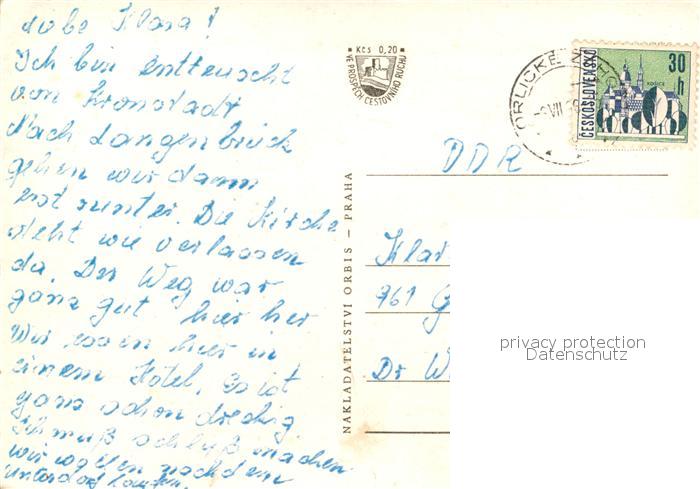 Liebe Klara!
Ich bin enttäuscht
von Kronstadt
Nach Langenbrück
gehen wir dann
erst runter. Die Kirche
steht wie verlassen
da. Der Weg war
ganz gut hier her
Wir essen hier in
einem Hotel. Es ist
ganz schon dreckig
Ich muß schluß machen
wir wollen nach dem
Unterdorf laufen.
Kčs 0,20
VE PROSPĚCH CESTOVNÍHO RUCHU
NAKLADATELSTVÍ ORBIS — PRAHA
ORLICKÉ
VII
ČESKOSLOVENSKO
30 h
KOŠICE
DDR
Klar
961 G
Dr W
privacy protection
Datenschutz